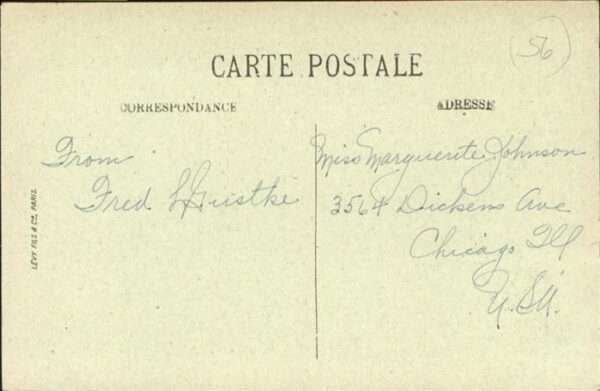 (56)
CARTE POSTALE
CORRESPONDANCE
ADRESSE
From
Fred L Gustke
Miss Marguerite Johnson
3564 Dickens Ave
Chicago Ill
U.S.A.
LÉVY FILS & Cie, PARIS